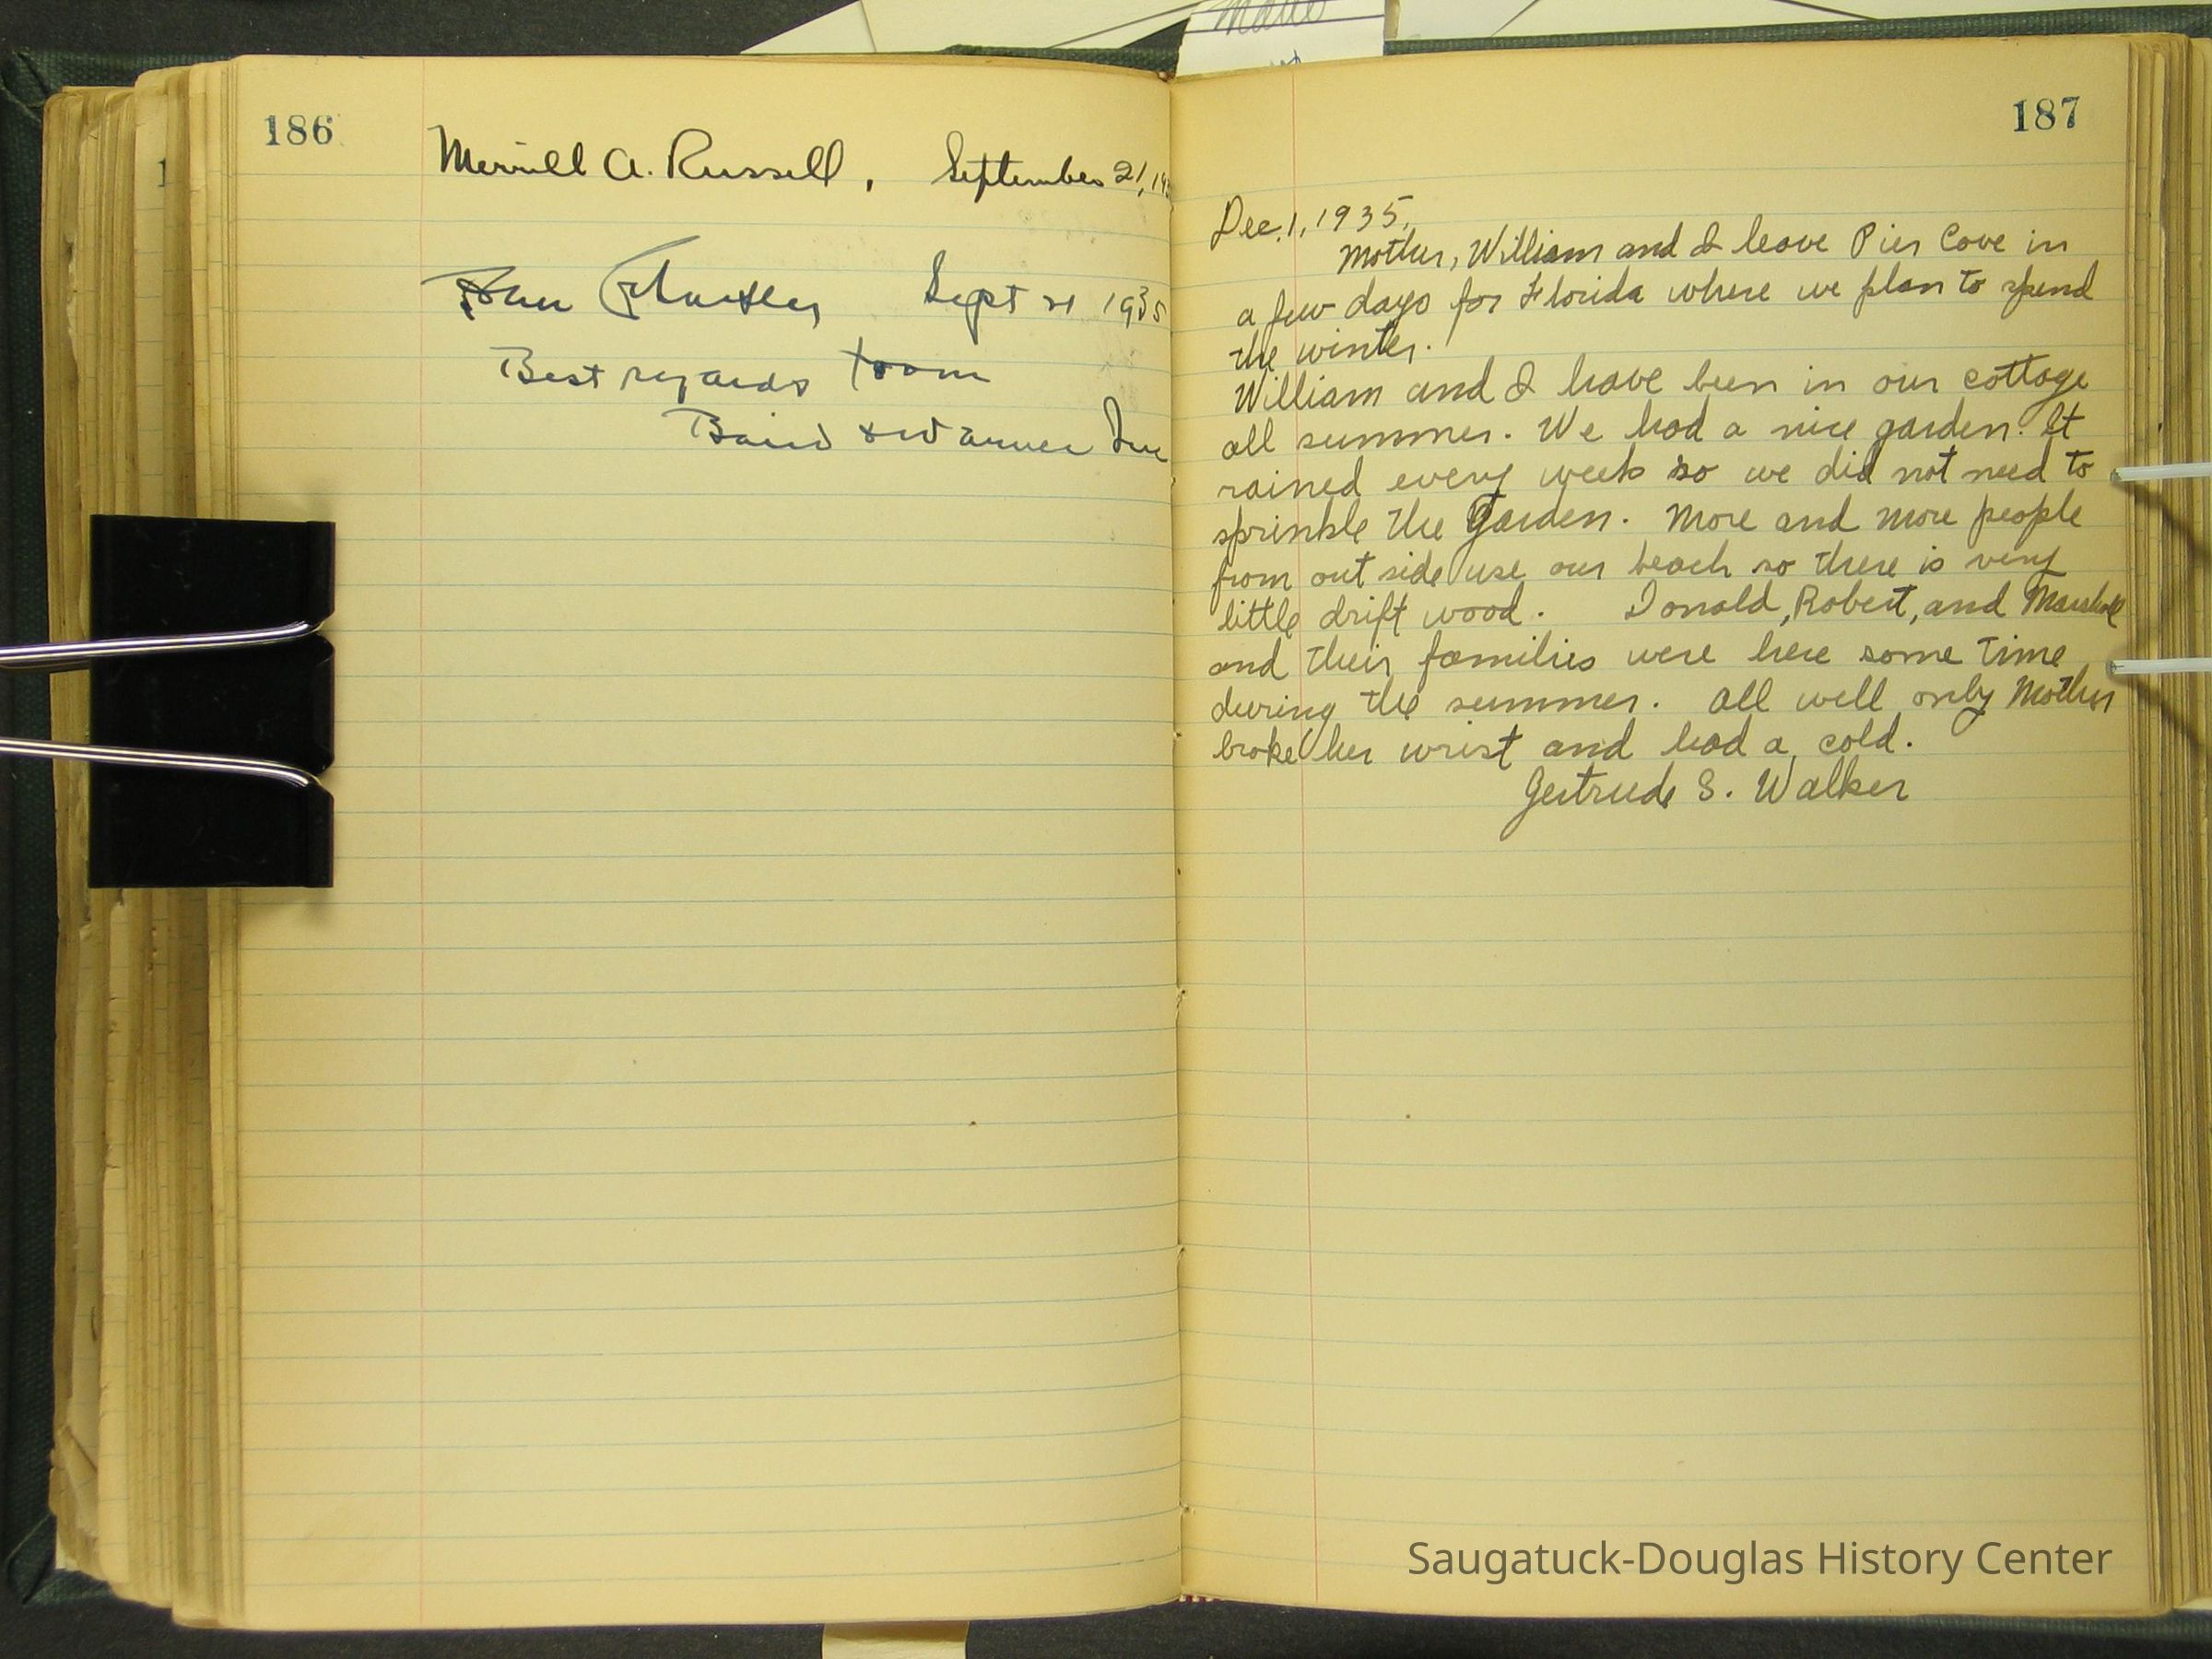 Male
186
Merrill A. Russell, September 21, 19
Sept 21 1935
Best regards from
Baird & Warner Inc
187
Dec. 1, 1935.
Mother, William and I leave Pier Cove in
a few days for Florida where we plan to spend
the winter.
William and I have been in our cottage
all summer. We had a nice garden. It
rained every week so we did not need to
sprinkle the garden. More and more people
from out side use our beach so there is very
little drift wood. Donald, Robert, and Marshall
and their families were here some time
during the summer. All well only Mother
broke her wrist and had a cold.
Gertrude S. Walker
Saugatuck-Douglas History Center